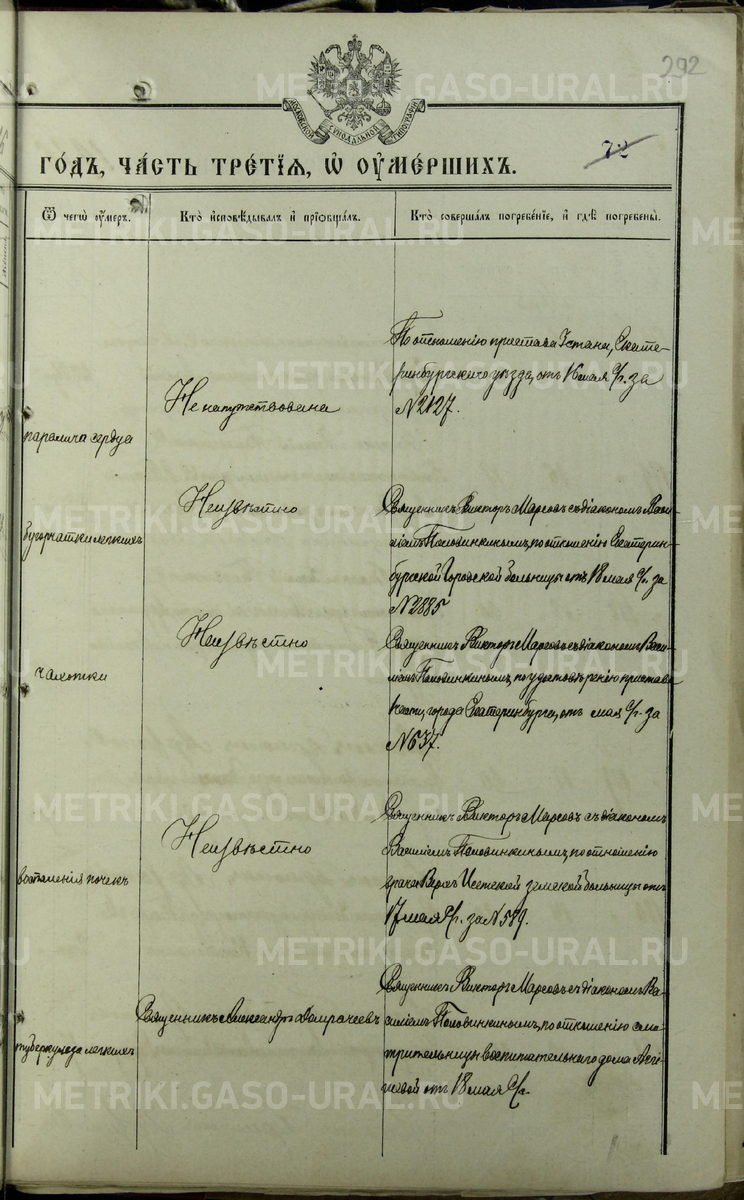 292
МОСКОВСКОЙ СѴНОДАЛЬНОЙ ТИПОГРАФІИ
72
ГО́ДЪ, ЧА́СТЬ ТРЕ́ТІѦ, Ѡ҆ ОУ҆МЕ́РШИХЪ.
Ѿ чегѡ̀ оу҆́меръ.
Кто̀ и҆сповѣ́дывалъ и҆ прїѡбща́лъ.
Кто̀ соверша́лъ погребе́нїе, и҆ гдѣ̀ погребены̀.
паралича сердца
Не напутствована
По отношенію пристава 1 стана, Екате-
ринбургскаго уѣзда, отъ 16 мая с/г. за
№ 2127.
бугорчатки легкихъ
Неизвѣстно
Священникъ Викторъ Марсовъ съ діакономъ Васи-
ліемъ Половинкинымъ, по отношенію Екатерин-
бургской Городской больницы отъ 18 мая с/г. за
№ 2885
чахотки
Неизвѣстно
Священникъ Викторъ Марсовъ съ діакономъ Васи-
ліемъ Половинкинымъ, по удостовѣренію пристава
части, города Екатеринбурга, отъ мая с/г. за
№ 637.
воспаленія почекъ
Неизвѣстно
Священникъ Викторъ Марсовъ съ діакономъ
Василіемъ Половинкинымъ, по отношенію
врача Верхъ Исетской земской больницы отъ
17 мая с/г. за № 589.
туберкулеза легкихъ
Священникъ Александръ Домрачеевъ
Священникъ Викторъ Марсовъ съ діакономъ Ва-
силіемъ Половинкинымъ, по отношенію смо-
трительницы воспитательнаго дома
отъ 18 мая с/г.
METRIKI.GASO-URAL.RU